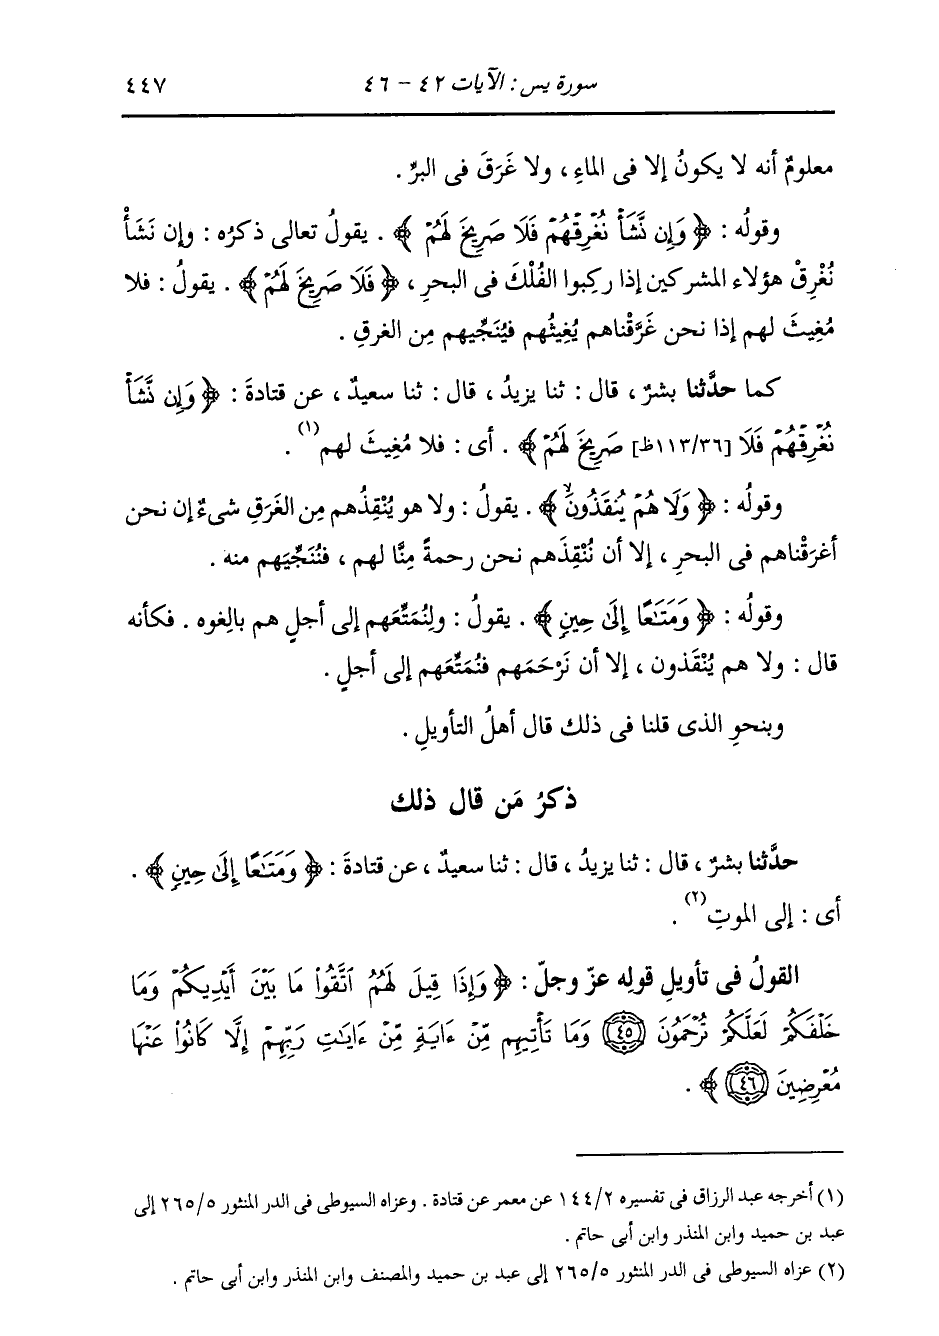 سورة يس : الآيات ٤٢ - ٤٦ ٤٤٧
معلومٌ أنه لا يكونُ إلا فى الماءِ ، ولا غَرَقَ فى البرِّ .
وقولُه : ﴿ وَإِن نَّشَأْ نُغْرِقْهُمْ فَلَا صَرِيخَ لَهُمْ ﴾ . يقولُ تعالى ذكرُه : وإن نَشَأْ
نُغْرِقْ هؤلاء المشركين إذا ركِبوا الفُلْكَ فى البحرِ ، ﴿ فَلَا صَرِيخَ لَهُمْ ﴾ . يقولُ : فلا
مُغِيثَ لهم إذا نحن غَرَّقْناهم يُغِيثُهم فيُنَجِّيهم مِن الغرقِ .
كما حدَّثنا بشرٌ ، قال : ثنا يزيدُ ، قال : ثنا سعيدٌ ، عن قتادةَ : ﴿ وَإِن نَّشَأْ
نُغْرِقْهُمْ فَلَا [١١٣/٣٦ظ] صَرِيخَ لَهُمْ ﴾ . أى : فلا مُغِيثَ لهم(١) .
وقولُه : ﴿ وَلَا هُمْ يُنقَذُونَ ﴾ . يقولُ : ولا هو يُنْقِذُهم مِن الغَرَقِ شىءٌ إن نحن
أغرَقْناهم فى البحرِ ، إلا أن نُنْقِذَهم نحن رحمةً مِنَّا لهم ، فنُنَجِّيَهم منه .
وقولُه : ﴿ وَمَتَٰعًا إِلَىٰ حِينٍ ﴾ . يقولُ : ولِنُمَتِّعَهم إلى أجلٍ هم بالِغوه . فكأنه
قال : ولا هم يُنْقَذون ، إلا أن نَرْحَمَهم فنُمَتِّعَهم إلى أجلٍ .
وبنحوِ الذى قلنا فى ذلك قال أهلُ التأويلِ .
ذكرُ مَن قال ذلك
حدَّثنا بشرٌ ، قال : ثنا يزيدُ ، قال : ثنا سعيدٌ ، عن قتادةَ : ﴿ وَمَتَٰعًا إِلَىٰ حِينٍ ﴾ .
أى : إلى الموتِ(٢) .
القولُ فى تأويلِ قولِه عزّ وجلّ : ﴿ وَإِذَا قِيلَ لَهُمُ ٱتَّقُوا۟ مَا بَيْنَ أَيْدِيكُمْ وَمَا
خَلْفَكُمْ لَعَلَّكُمْ تُرْحَمُونَ ٤٥ وَمَا تَأْتِيهِم مِّنْ ءَايَةٍ مِّنْ ءَايَٰتِ رَبِّهِمْ إِلَّا كَانُوا۟ عَنْهَا
مُعْرِضِينَ ٤٦ ﴾ .
(١) أخرجه عبد الرزاق فى تفسيره ١٤٤/٢ عن معمر عن قتادة . وعزاه السيوطى فى الدر المنثور ٢٦٥/٥ إلى
عبد بن حميد وابن المنذر وابن أبى حاتم .
(٢) عزاه السيوطى فى الدر المنثور ٢٦٥/٥ إلى عبد بن حميد والمصنف وابن المنذر وابن أبى حاتم .